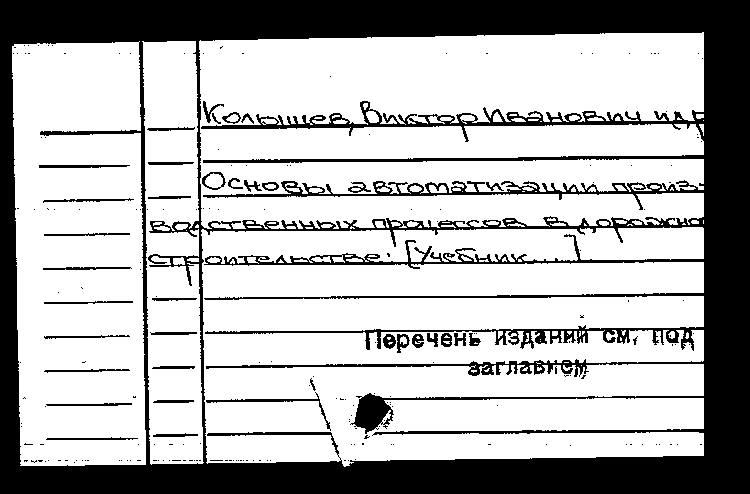 Колышев, Виктор Иванович и др
Основы автоматизации произ-
водственных процессов в дорожно
строительстве: [Учебник...]
Перечень изданий см. под
заглавием